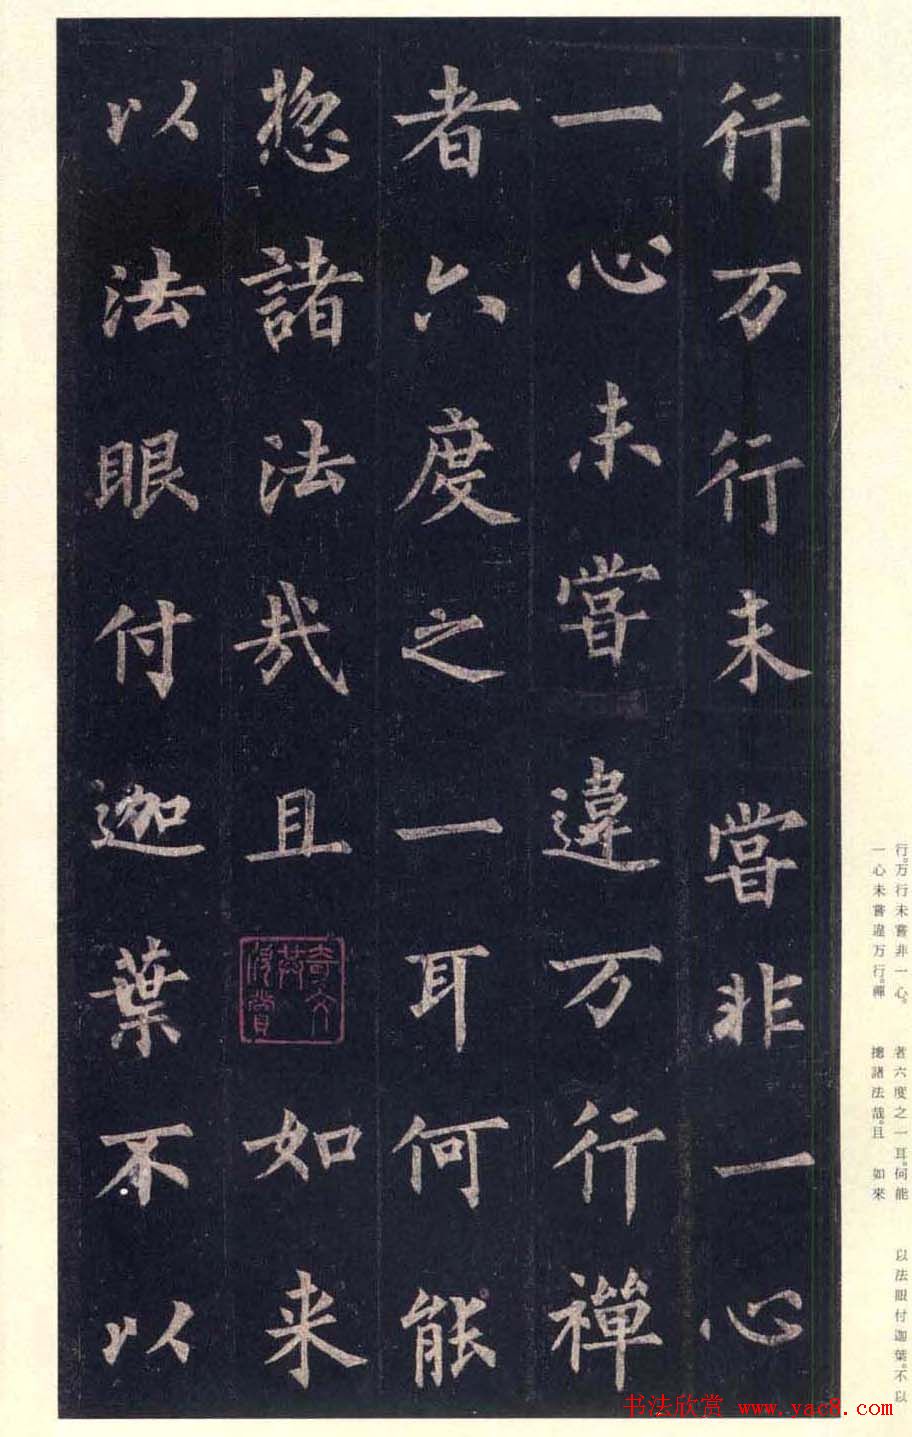 行万行未嘗非一心
一心未嘗違万行禪
者六度之一耳何能
惣諸法哉且 如来
以法眼付迦葉不以
行。万行未嘗非一心。
一心未嘗違万行。禪
者六度之一耳。何能
摠諸法哉。且 如來
以法眼付迦葉。不以
书法欣赏 www.yac8.com